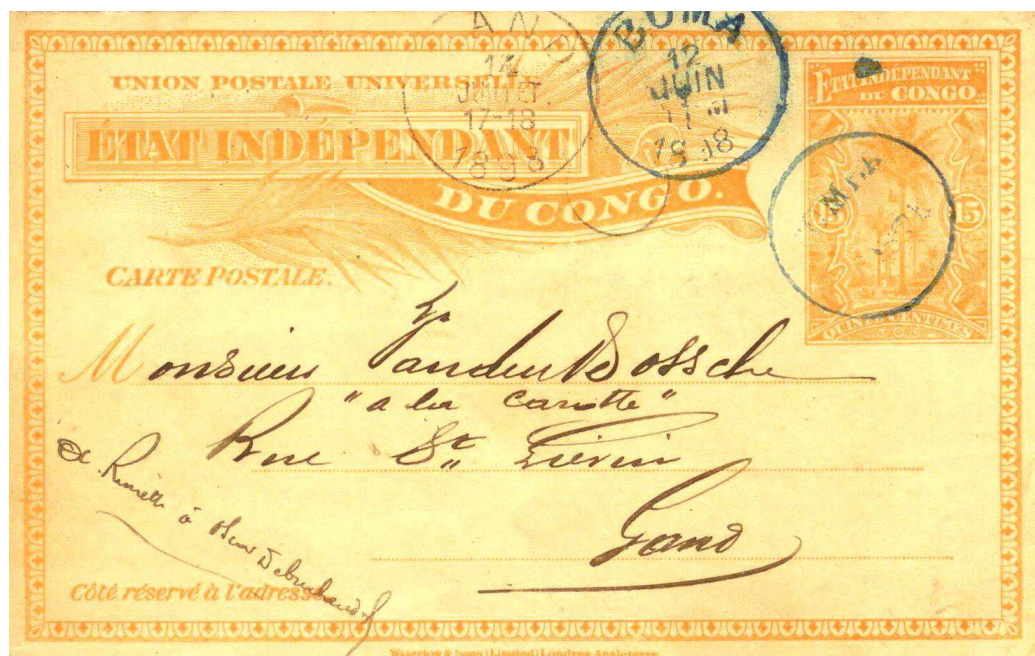 UNION POSTALE UNIVERSELLE
ÉTAT INDÉPENDANT
DU CONGO.
CARTE POSTALE.
AND
14
JUIL
17-18
1898
BOMA
12
JUIN
1898
ETAT INDÉPENDANT
DU CONGO
15 15
QUINZE CENTIMES
Monsieur Vanden Bossche
"a la carotte"
Rue St. Liévin
Gand
à
Côté réservé à l'adresse
Waterlow & Sons Limited Londres Angleterre